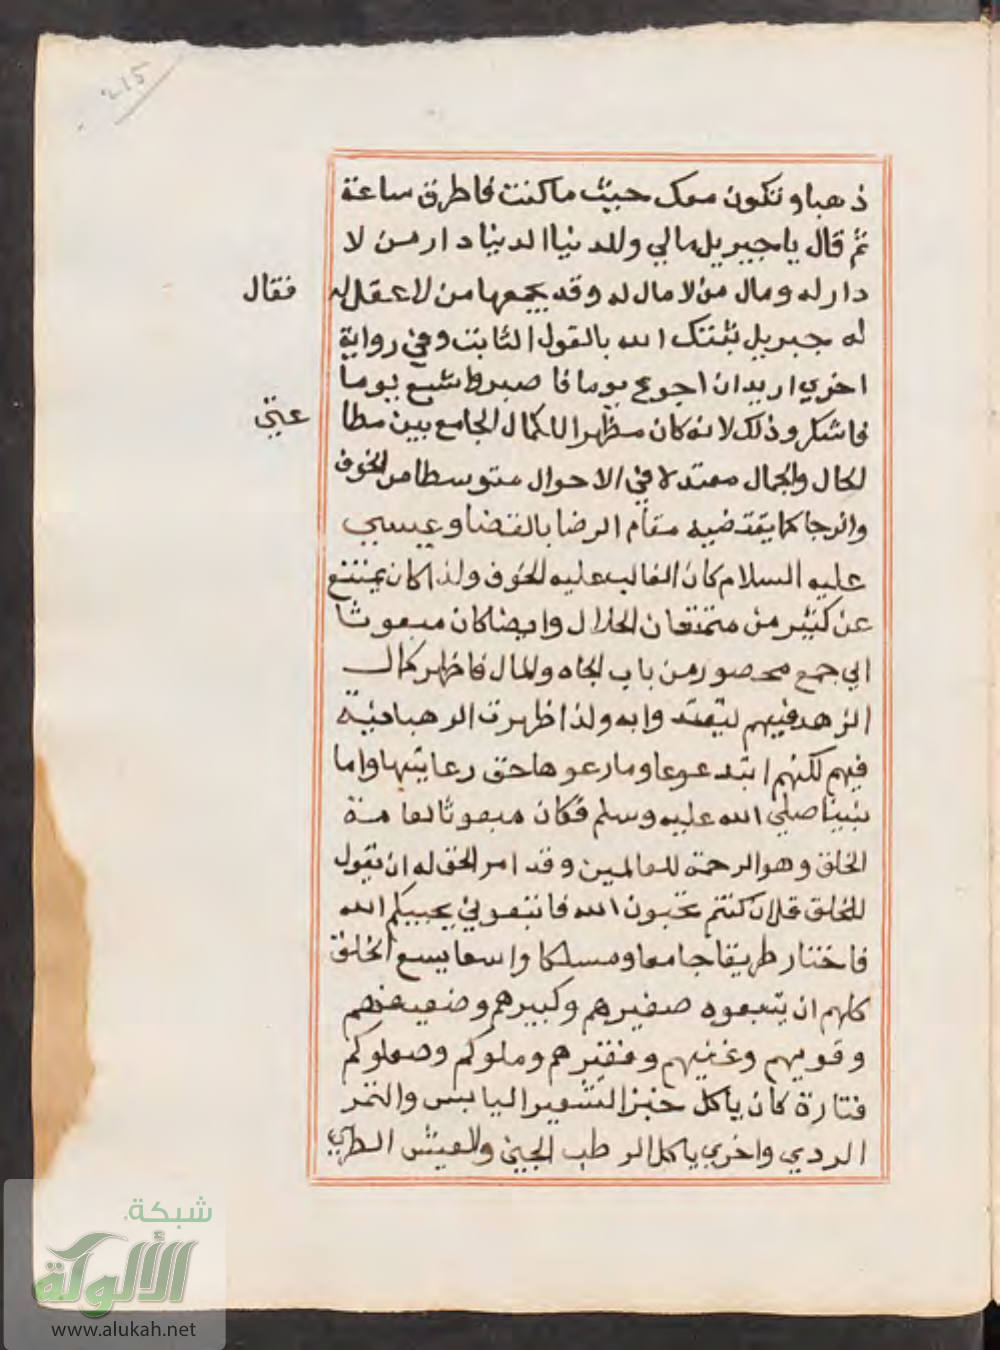 215
ذهبا وتكون معك حيث ما كنت فاطرق ساعة
ثم قال يا جبريل مالي وللدنيا الدنيا دار من لا
دار له ومال من لا مال له وقد يجمعها من لا عقل له
فقال
له جبريل ثبتك الله بالقول الثابت وفي رواية
اخري اريد ان اجوع يوما فاصبر واشبع يوما
فاشكر وذلك لانه كان مظهرا للكمال الجامع بين مظا
لحال والجمال معتدلا في الاحوال متوسطا من الخوف
والرجا كما يقتضيه مقام الرضا بالقضا وعيسي
عليه السلام كان الغالب عليه الخوف ولذا كان يمتنع
عن كثير من متمتعان الحلال وايضا كان مبعوثا
الي جمع محصور من باب الجاه والمال فاظهر كمال
الزهد فيهم ليقتدوا به ولذا ظهرت الرهبانية
فيهم لكنهم ابتدعوعا وما رعوها حق رعايتها واما
نبينا صلي الله عليه وسلم فكان مبعوثا لعامة
الخلق وهو الرحمة للعالمين وقد امر الحق له ان يقول
للخلق قل ان كنتم تحبون الله فاتبعوني يحببكم الله
فاختار طريقا جامعا ومسلكا واسعا يسع الخلق
كلهم ان يتبعوه صغيرهم وكبيرهم وضعيفهم
وقويهم وغنيهم وفقيرهم وملوكهم وصعلوكهم
فتارة كان ياكل خبز الشعير اليابس والتمر
الردي واخري ياكل الرطب الجني والعيش الطري
شبكة
الألوكة
www.alukah.net